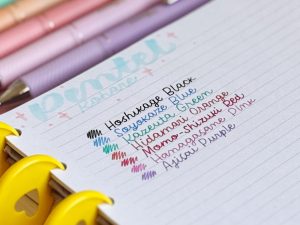 Pentel
Kohare
Hoshikage Black
Soyokaze Blue
Kazeuta Green
Hidamari Orange
Momo-Shizuki Red
Hanagasane Pink
Ajisai Purple